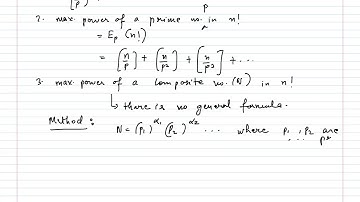 [p]
p
2. max. power of a prime no. in n!
= Ep (n!)
= [n/p] + [n/p²] + [n/p³] + ...
3. max. power of a composite no. (N) in n!
↳ there is no general formula.
Method :
N = (p₁)^α₁ (p₂)^α₂ ... where p₁, p₂ ... are